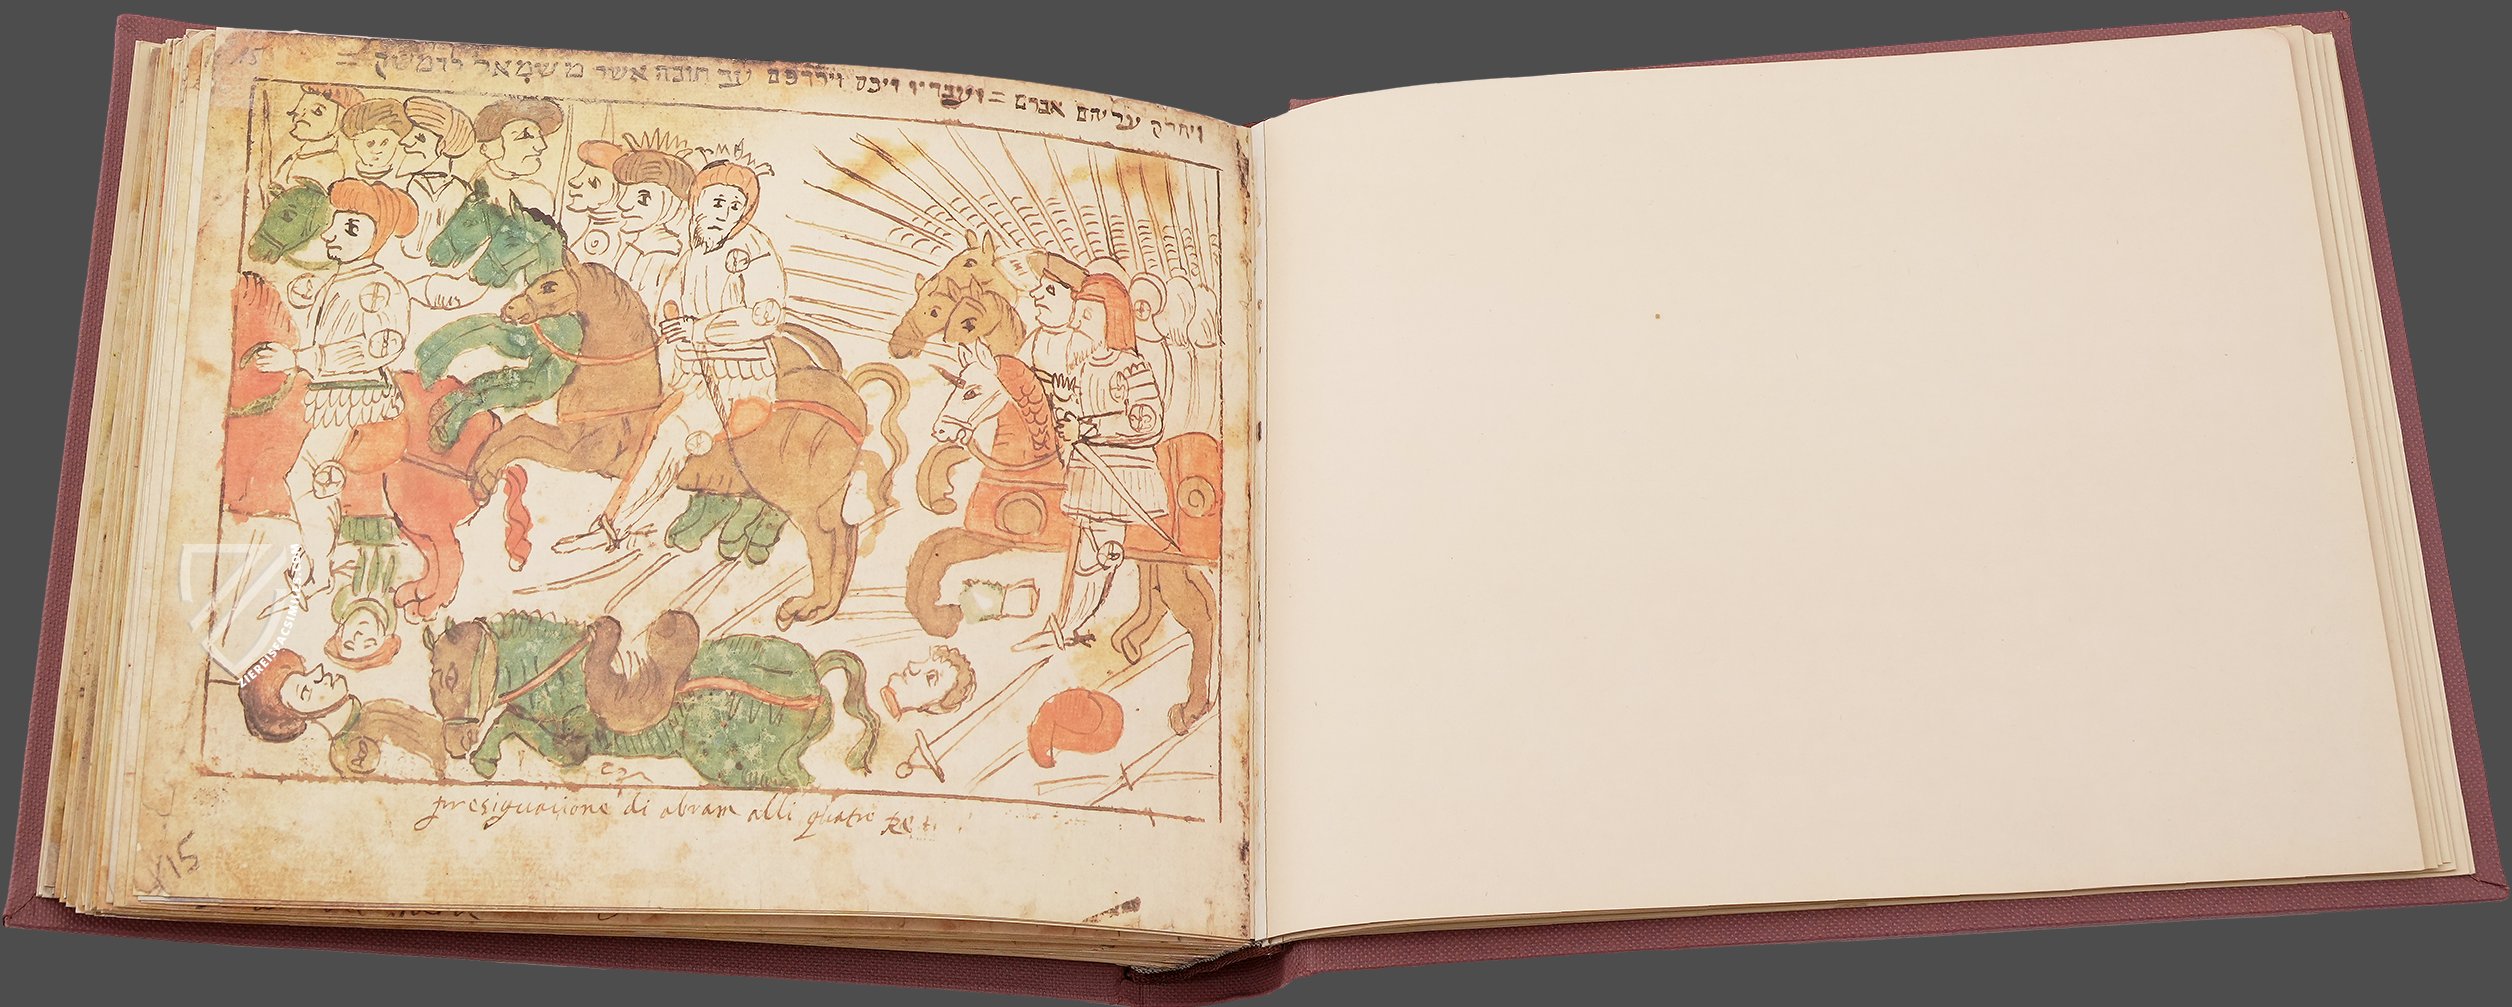 15
ויחלק עליהם אברם = ועבדיו ויכם וירדפם עד חובה אשר משמאל לדמשק =
presiguacione di abram alli quatro Re
15
ZIEREISFACSIMILES.COM